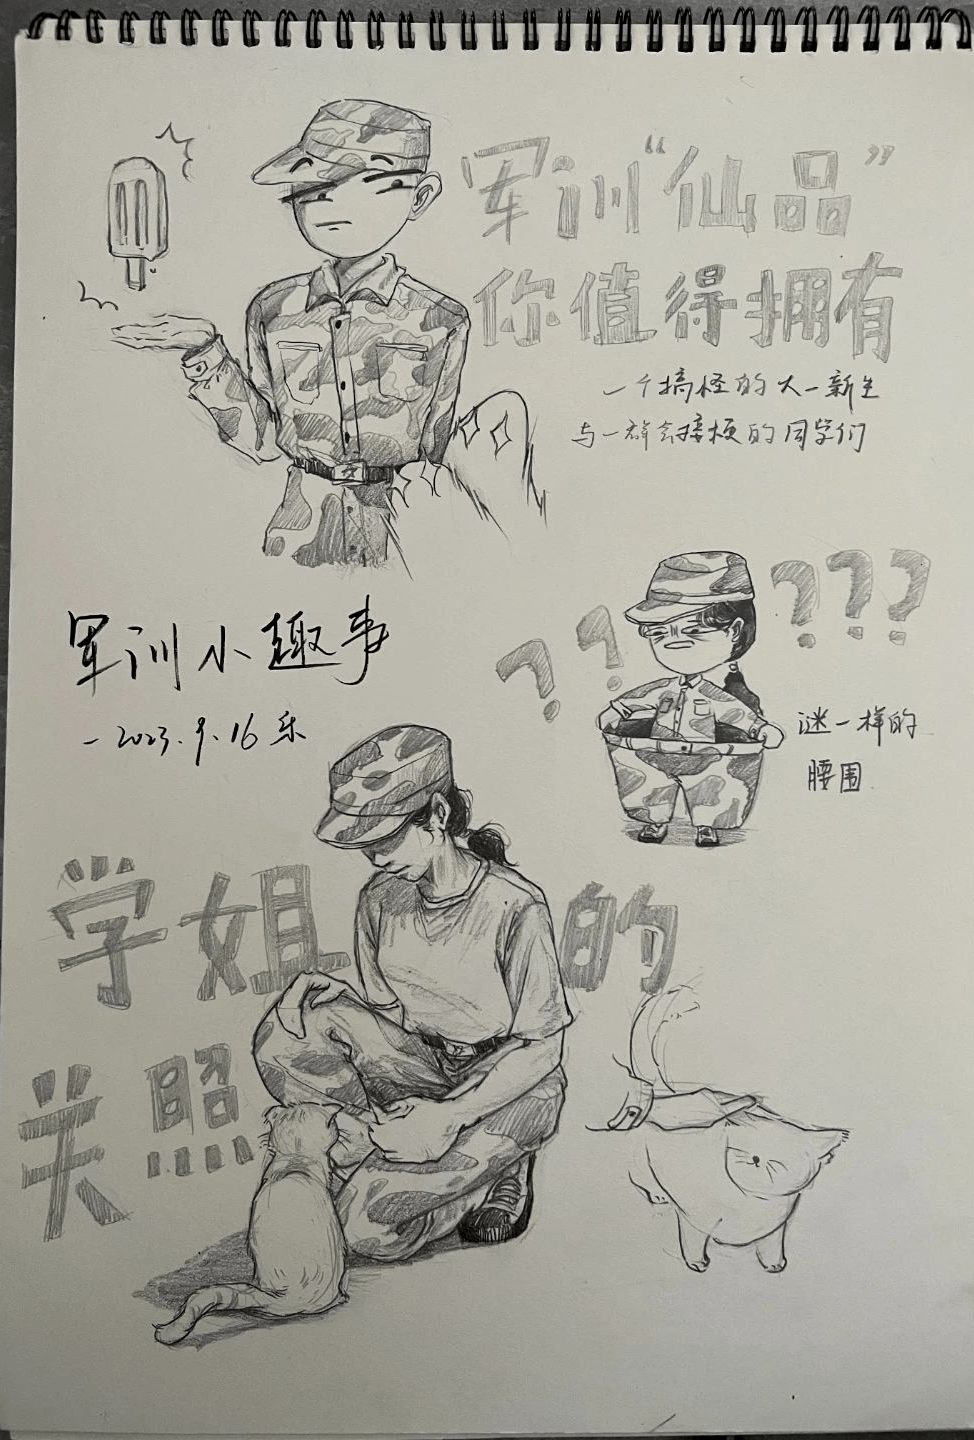 军训“仙品”
你值得拥有
一个搞怪的大一新生
与一群会接梗的同学们
军训小趣事
-2023.9.16 乐
?????
谜一样的
腰围
学姐的
关照